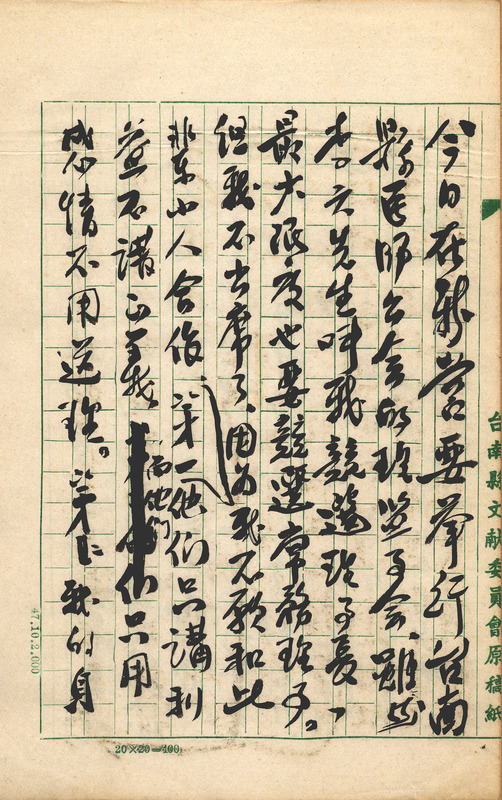 台南縣文献委員會原稿紙
今日在新營要舉行台南
縣医師公会的理监事会、雖然
李先生叫我競選理事長、
最大限度也要競選常務理事。
但我不出席了、因为我不願和此
輩小人合作、第一他们只講利
益不講正義 而他们只用
感情不用道理。第二我的身
47.10.2,000
20×20=400